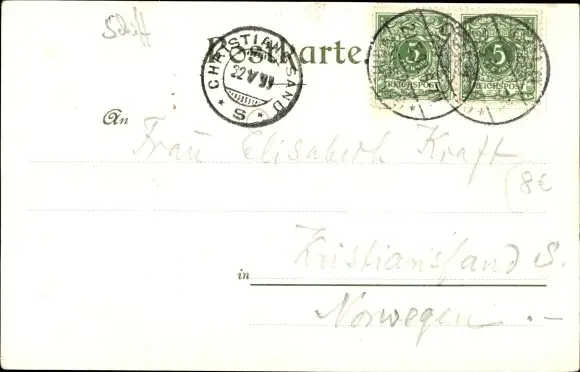 Schiff
Postkarte
CHRISTIANSSAND
22 V 99
S
5
REICHSPOST
5
REICHSPOST
An
Frau Elisabeth Kraft
8€
Kristiansand S.
in
Norwegen.-